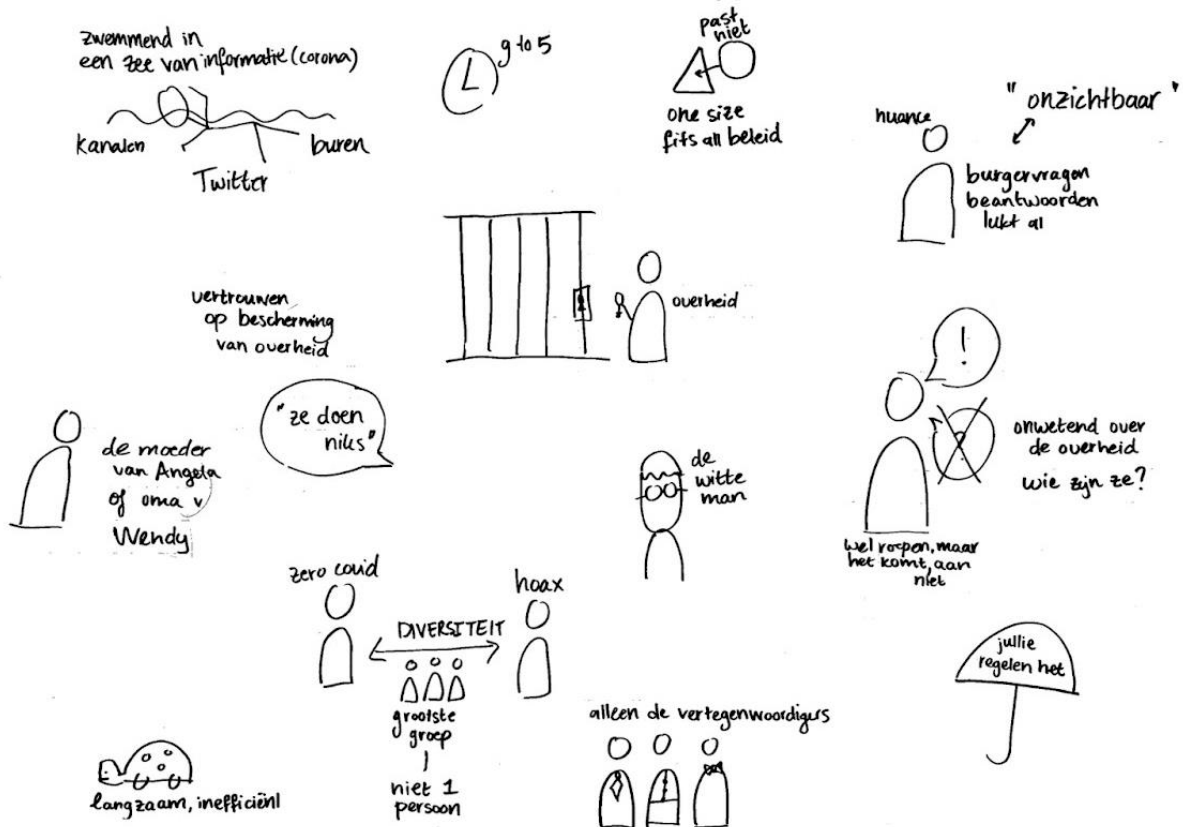 zwemmend in
een zee van informatie (corona)
kanalen
Twitter
buren
9 to 5
past
niet
one size
fits all beleid
nuance
"onzichtbaar"
burgervragen
beantwoorden
lukt al
vertrouwen
op bescherming
van overheid
overheid
"ze doen
niks"
de moeder
van Angela
of oma v
Wendy
de
witte
man
!
?
onwetend over
de overheid
wie zijn ze?
wel roepen, maar
het komt aan
niet
zero covid
hoax
DIVERSITEIT
grootste
groep
niet 1
persoon
jullie
regelen het
alleen de vertegenwoordigers
langzaam, inefficiënt